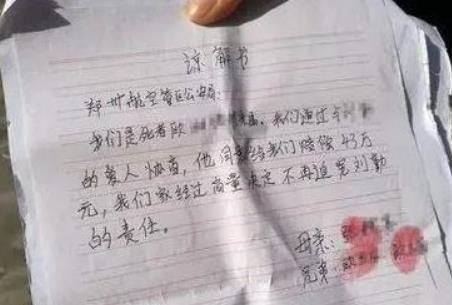 谅解书
郑州航空管区公安局:
我们是死者欧 家属。我们通过
的爱人协商,他同意给我们赔偿43万
元,我们家经过商量决定不再追究刘勤
的责任。
母亲:张
兄弟:欧